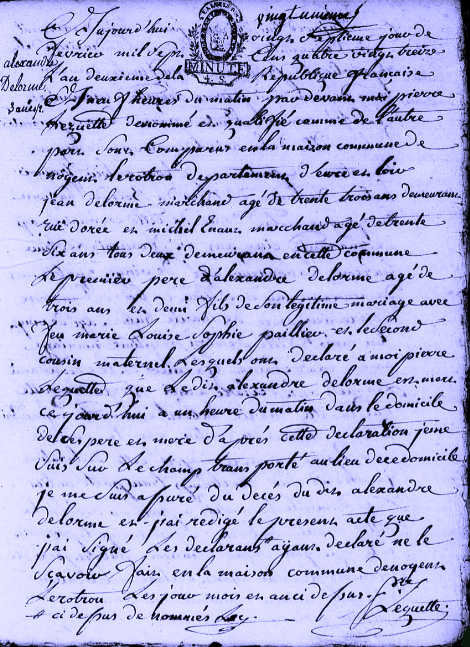 vingtunieme
Ce Jourd'hui vingt septieme jour de
fevrier mil sept Cens quatre vingt treize
alexandre
Delorme
3 ans ½
MINUTE
L'an deuxieme de la Republique française
a neuf heures du matin par devant moi pierre
Lequette denommé et qualifié comme de l'autre
part Sont Comparus en la maison commune de
nogent Lerotrou departement d'Eure et loir
jean delorme marchand agé de trente trois ans demeurant
rue dorée et michel marchand agé de trente
Six ans tous deux demeurans en cette commune
Le premier pere d'alexandre delorme agé de
trois ans et demi fils de Son legitime mariage avec
feu marie Louise Sophie paillier et le Second
Cousin maternel Lesquels ont declaré a moi pierre
Lequette que Ledit alexandre delorme est mort
ce jourd'hui a un heure du matin dans le domicile
de Ses pere et mere d'aprés cette declaration je me
Suis Sur Le champ transporté au lieu de ce domicile
je me Suis assuré du decés du dit alexandre
delorme et j'ai redigé le present acte que
j'ai Signé Les declarans # ayant declaré ne le
Sçavoir fait en la maison commune de nogent
Lerotrou Les jour mois et an ci dessus.
# ci dessus denommés Leq. Lequette